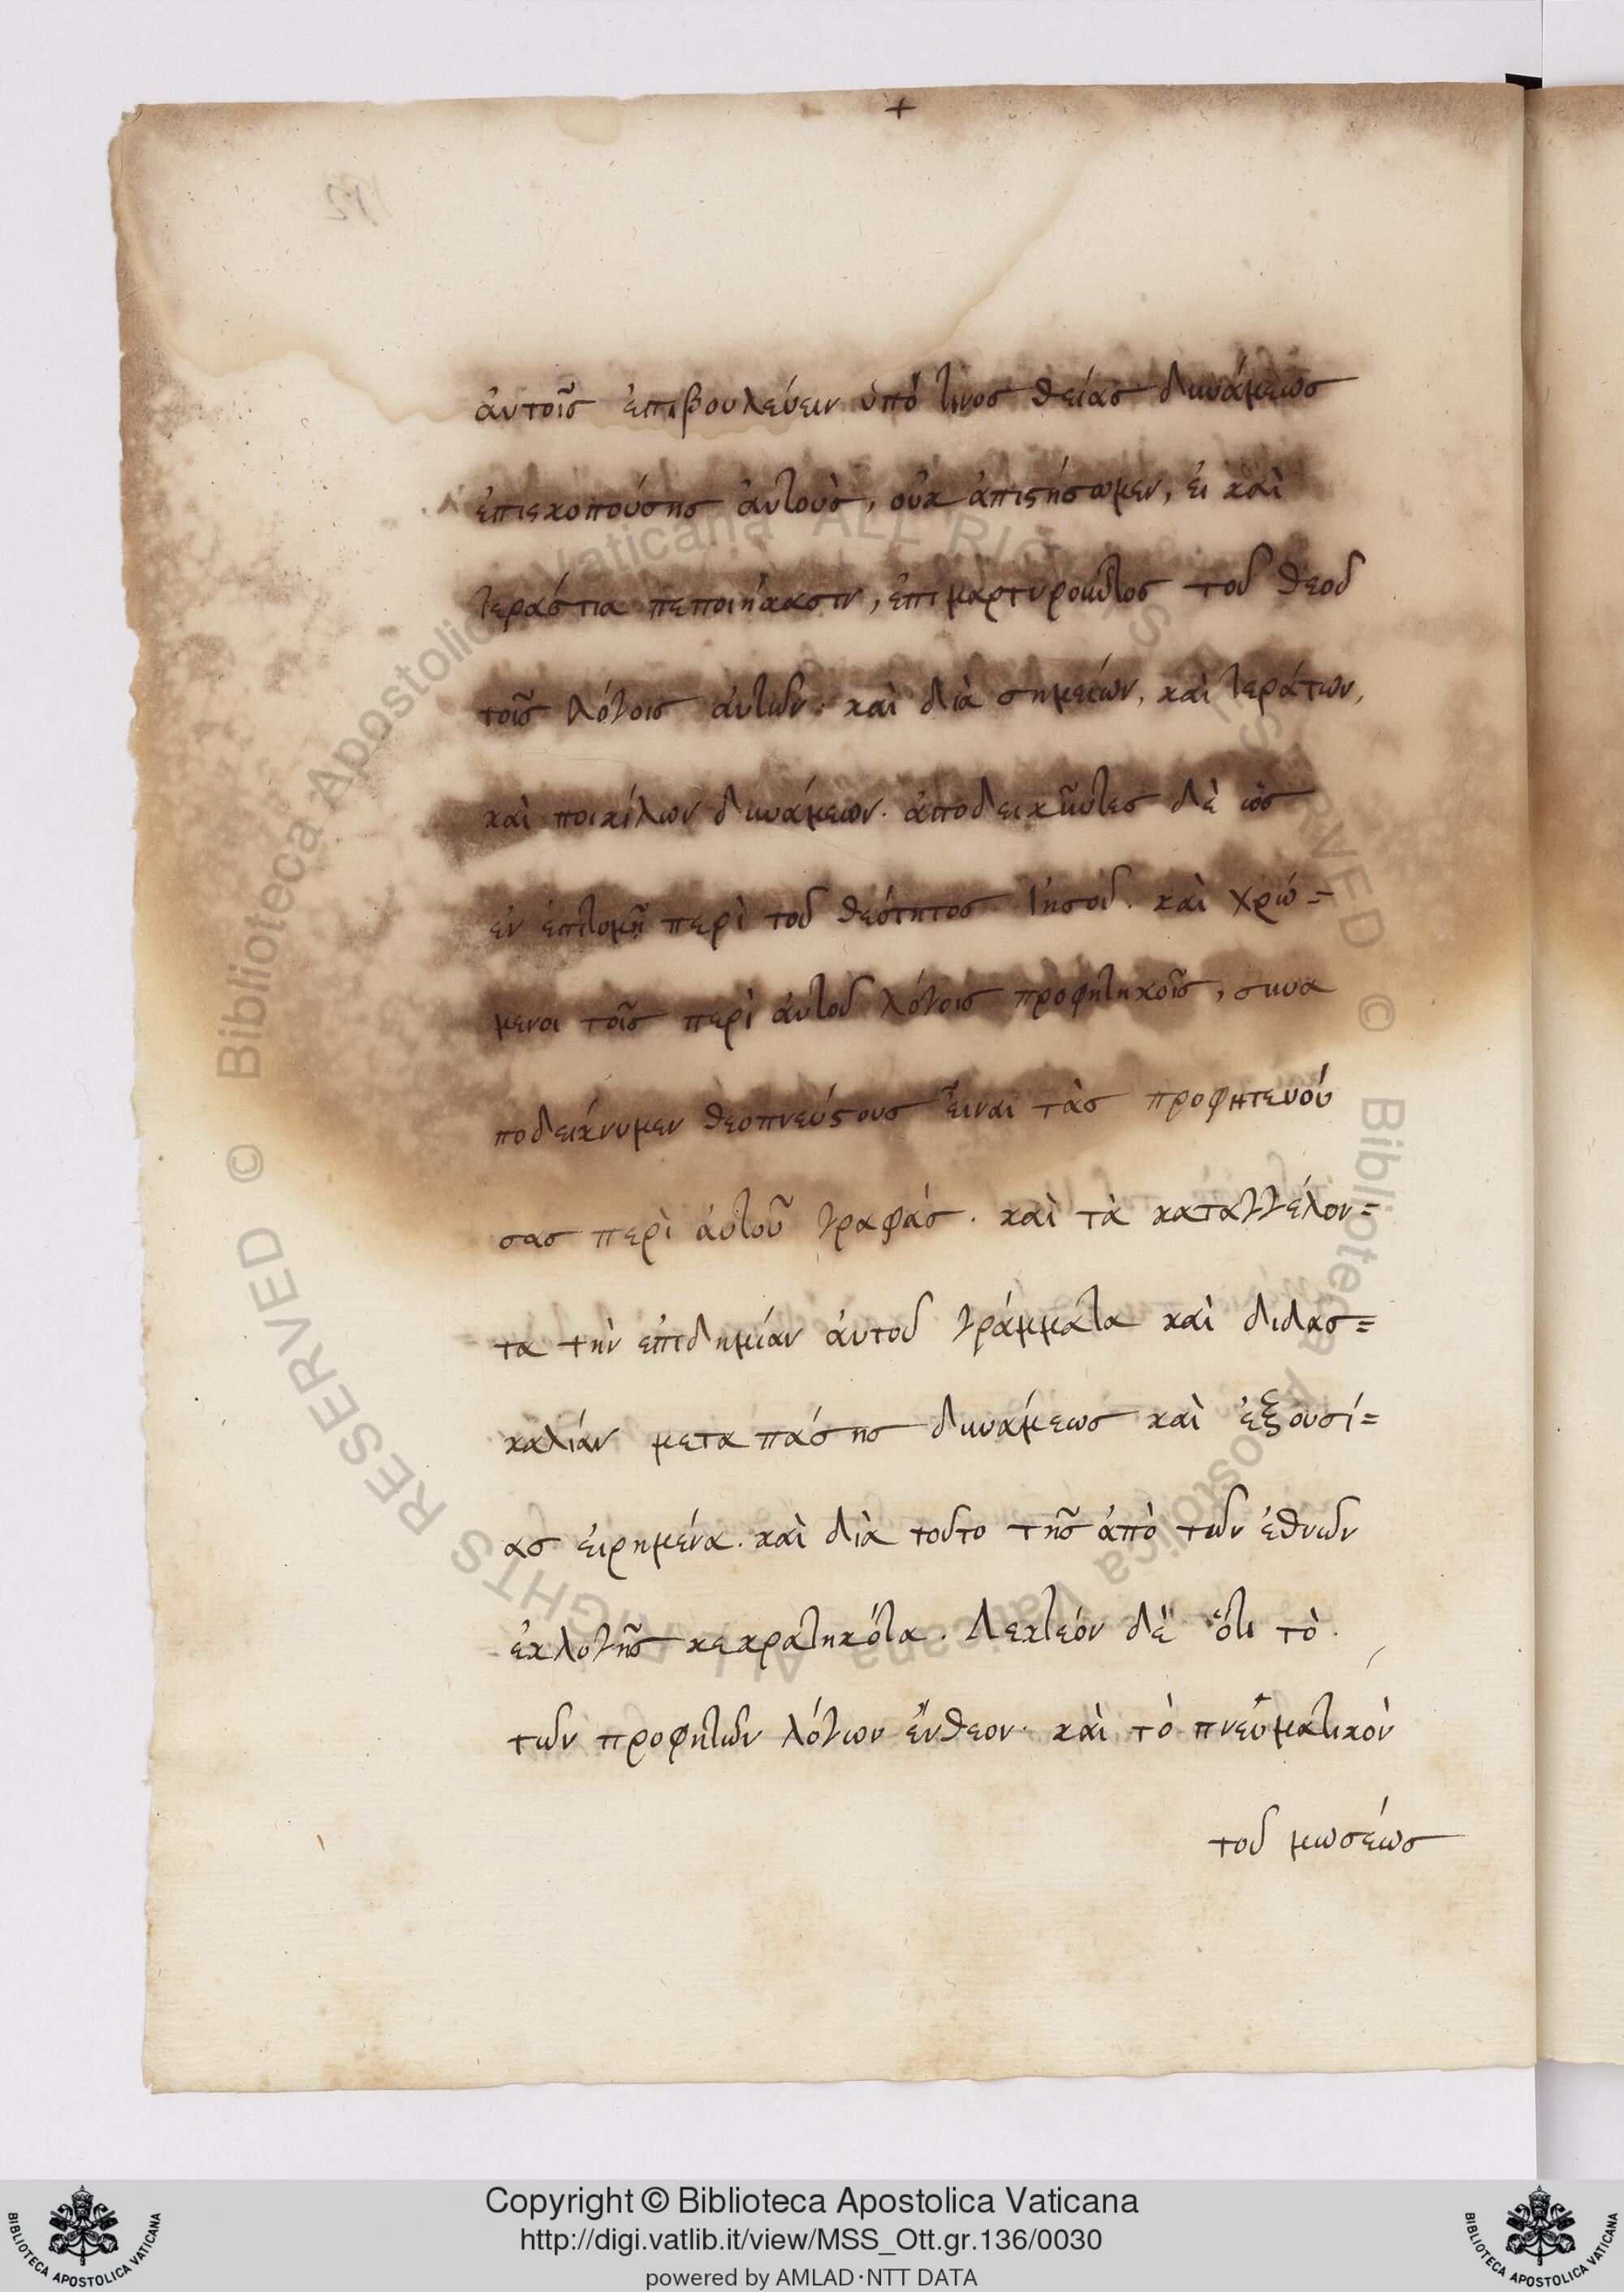 +
ἀυτοῖς ἐπιβουλεύειν ὑπό τινος θείας δυνάμεως
ἐπισκοπούσης ἀυτοὺς, οὐκ ἀπιστήσωμεν, ἐι καὶ
τεράστια πεποιήκασιν, ἐπιμαρτυροῦντος τοῦ θεοῦ
τοῖς λόγοις ἀυτῶν· καὶ διὰ σημείων, καὶ τεράτων,
καὶ ποικίλων δυνάμεων. ἀποδεικνῦντες δὲ ὡς
ἐν ἐπιτομῇ περὶ τοῦ θεότητος Ιησοῦ. καὶ χρώ=
μενοι τοῖς περὶ ἀυτοῦ λόγοις προφητηκοῖς, συνα
ποδείκνυμεν θεοπνεύστους ἐῖναι τὰς προφητευού
σας περὶ ἀυτοῦ γραφάς. καὶ τὰ καταγγέλον=
τα τὴν ἐπιδημίαν ἀυτοῦ γράμματα καὶ διδασ=
καλίαν μετα πάσης δυνάμεως καὶ ἐξουσί=
ας ἐιρημένα. καὶ διὰ τοῦτο τῆς ἀπὸ τῶν ἐθνῶν
ἐκλογῆς κεκρατηκότα. Λεκτεόν δὲ ὅτι τὸ.
τῶν προφητῶν λόγων ἔνθεον· καὶ τὸ πνευματικὸν
τοῦ μωσέως
Copyright © Biblioteca Apostolica Vaticana
http://digi.vatlib.it/view/MSS_Ott.gr.136/0030
powered by AMLAD·NTT DATA
BIBLIOTECA APOSTOLICA VATICANA
BIBLIOTECA APOSTOLICA VATICANA
© Biblioteca Apostolica Vaticana ALL RIGHTS RESERVED © Biblioteca Apostolica Vaticana ALL RIGHTS RESERVED